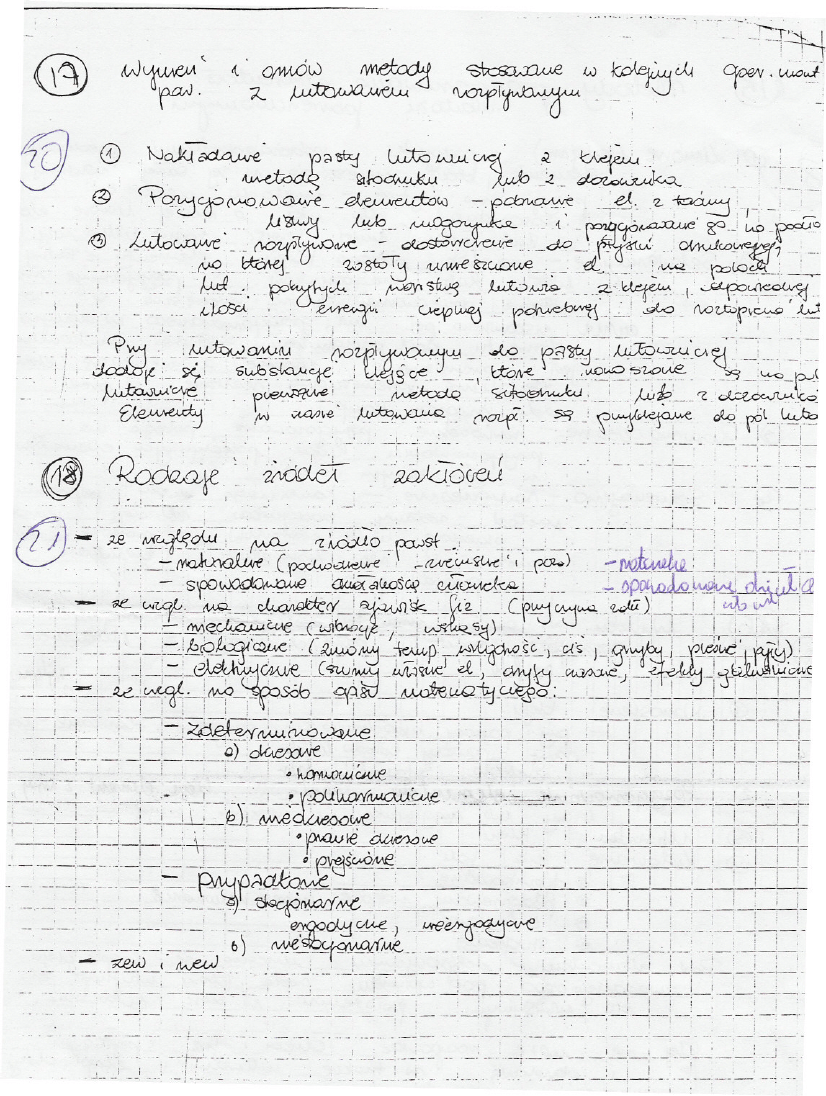 17 Wymień i omów metody stosowane w kolejnych oper. mont
pow. z lutowaniem rozpływowym
20
1 Nakładanie pasty lutowniczej z klejem
metodą sitodruku lub z dozownika
2 Pozycjonowanie elementów - pobranie el. z taśmy,
listwy lub magazynka i pozycjonowanie go na podło
3 Lutowanie rozpływowe - dostarczenie do płytki drukowanej,
na której zostały umieszczone el. na polach
lut. pokrytych warstwą lutowia z klejem, odpowiedniej
ilości energii cieplnej potrzebnej do roztopienia lut
Przy lutowaniu rozpływowym do pasty lutowniczej
dodaje się substancje klejące, które nanoszone są na pol
lutownicze pierwsze metodą sitodruku lub z dozownika
Elementy w czasie lutowania rozpł. są przyklejane do pól luto
18 Rodzaje źródeł zakłóceń
21 - ze względu na źródło powst.
- naturalne (pochodzenie - ziemskie i poza) - naturalne
- spowodowane działalnością człowieka - spowodowane dział. cz
- ze wzgl. na charakter zjawisk fiz (przyczyna zakł)
- mechaniczne (wibracje, wstrząsy)
- biologiczne (zmiany temp, wilgotność, ciś, grzyby, pleśnie, pyły)
- elektryczne (szumy własne el, dryfy czasowe,  efekty
- ze wzgl. na sposób opisu matematycznego:
- zdeterminowane
a) okresowe
• harmoniczne
• poliharmoniczne
b) nieokresowe
• prawie okresowe
• przejściowe
- przypadkowe
a) stacjonarne
ergodyczne, nieergodyczne
b) niestacjonarne
- zew i wew